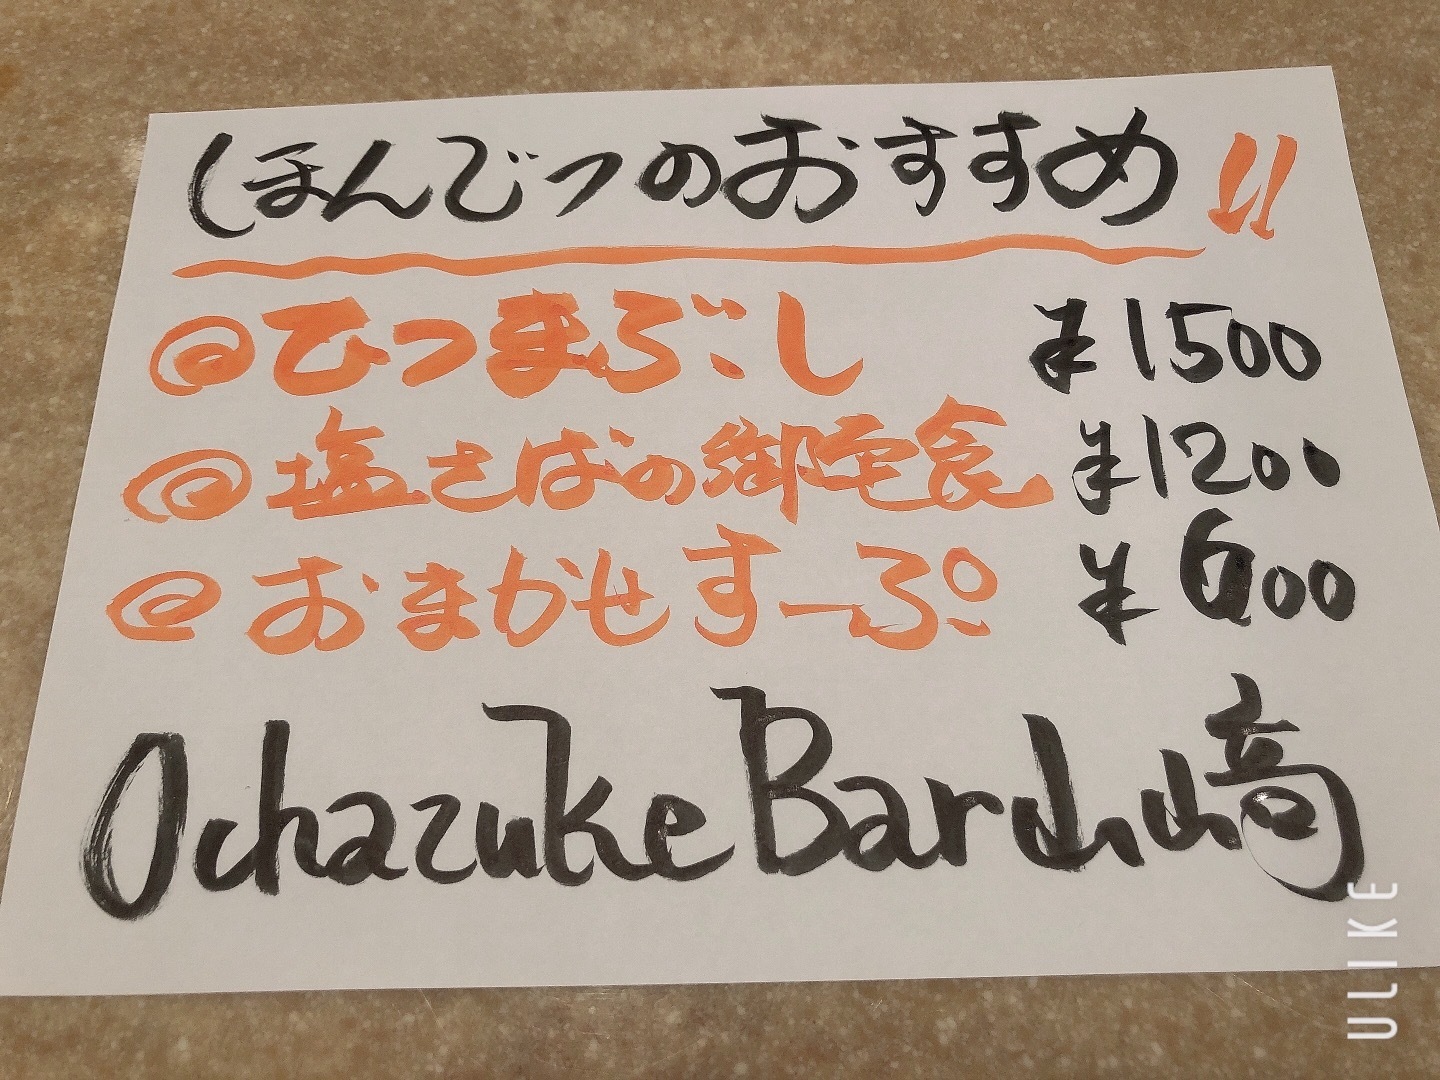 ほんじつのおすすめ!!
@ひつまぶし ¥1500
@塩さばの御定食 ¥1200
@おまかせすーぷ ¥600
Ochazuke Bar 山﨑
ULIKE